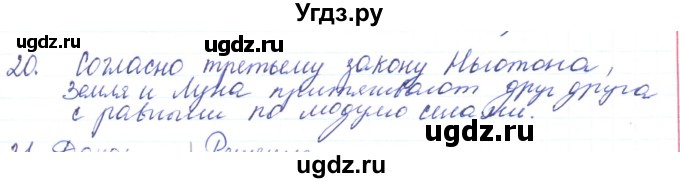 Угдз.ру
gdz.ru gdz.ru gdz.ru
20. Согласно третьему закону Ньютона,
Земля и Луна притягивают друг друга
с равными по модулю силами.
gdz.ru gdz.ru gdz.ru
gdz.ru